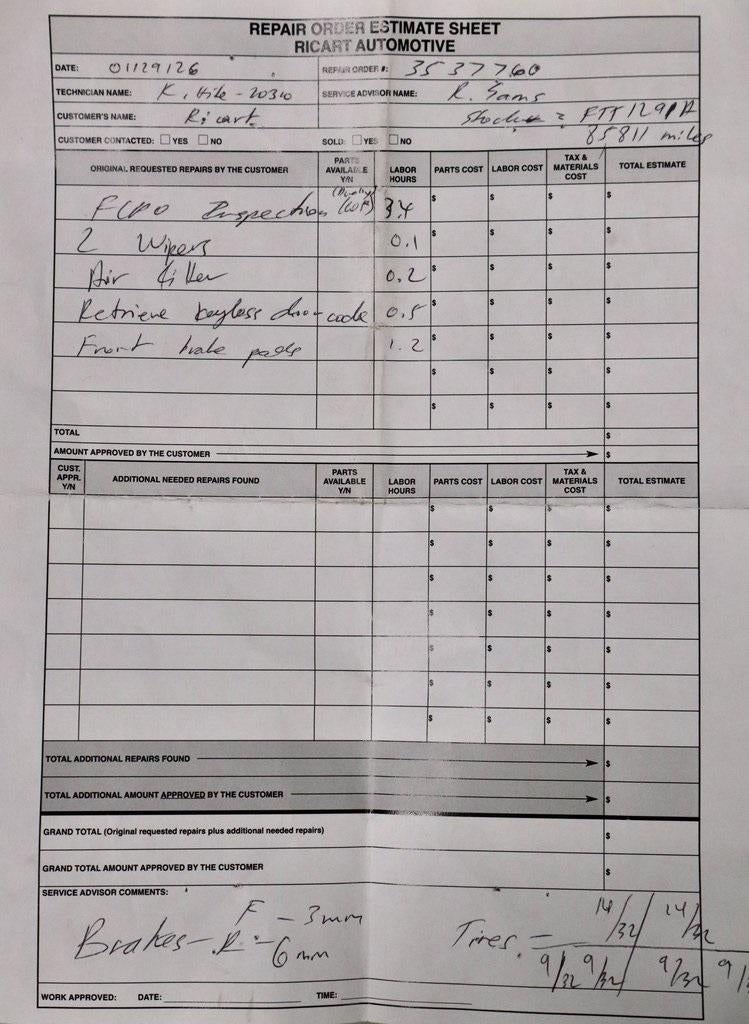 REPAIR ORDER ESTIMATE SHEET
RICART AUTOMOTIVE
DATE: 01/29/26 REPAIR ORDER #: 3537760
TECHNICIAN NAME: K. Hite - 20310 SERVICE ADVISOR NAME: R. Sams
CUSTOMER'S NAME: Ricart Stock# = FTT1291A
85811 miles
CUSTOMER CONTACTED: YES NO SOLD: YES NO
ORIGINAL REQUESTED REPAIRS BY THE CUSTOMER PARTS AVAILABLE Y/N LABOR HOURS PARTS COST LABOR COST TAX & MATERIALS COST TOTAL ESTIMATE
FCPO Inspection 3.4 $ $ $ $
2 Wipers 0.1 $ $ $ $
Air filter 0.2 $ $ $ $
Retrieve keyless door code 0.5 $ $ $ $
Front brake pads 1.2 $ $ $ $
$ $ $ $
$ $ $ $
TOTAL $
AMOUNT APPROVED BY THE CUSTOMER $
CUST. APPR. Y/N ADDITIONAL NEEDED REPAIRS FOUND PARTS AVAILABLE Y/N LABOR HOURS PARTS COST LABOR COST TAX & MATERIALS COST TOTAL ESTIMATE
$ $ $ $
$ $ $ $
$ $ $ $
$ $ $ $
$ $ $ $
$ $ $ $
$ $ $ $
TOTAL ADDITIONAL REPAIRS FOUND $
TOTAL ADDITIONAL AMOUNT APPROVED BY THE CUSTOMER $
GRAND TOTAL (Original requested repairs plus additional needed repairs) $
GRAND TOTAL AMOUNT APPROVED BY THE CUSTOMER $
SERVICE ADVISOR COMMENTS:
Brakes - F - 3mm Tires - 14/32 14/32
R - 6mm 9/32 9/32 9/32 9/
WORK APPROVED: DATE: TIME: